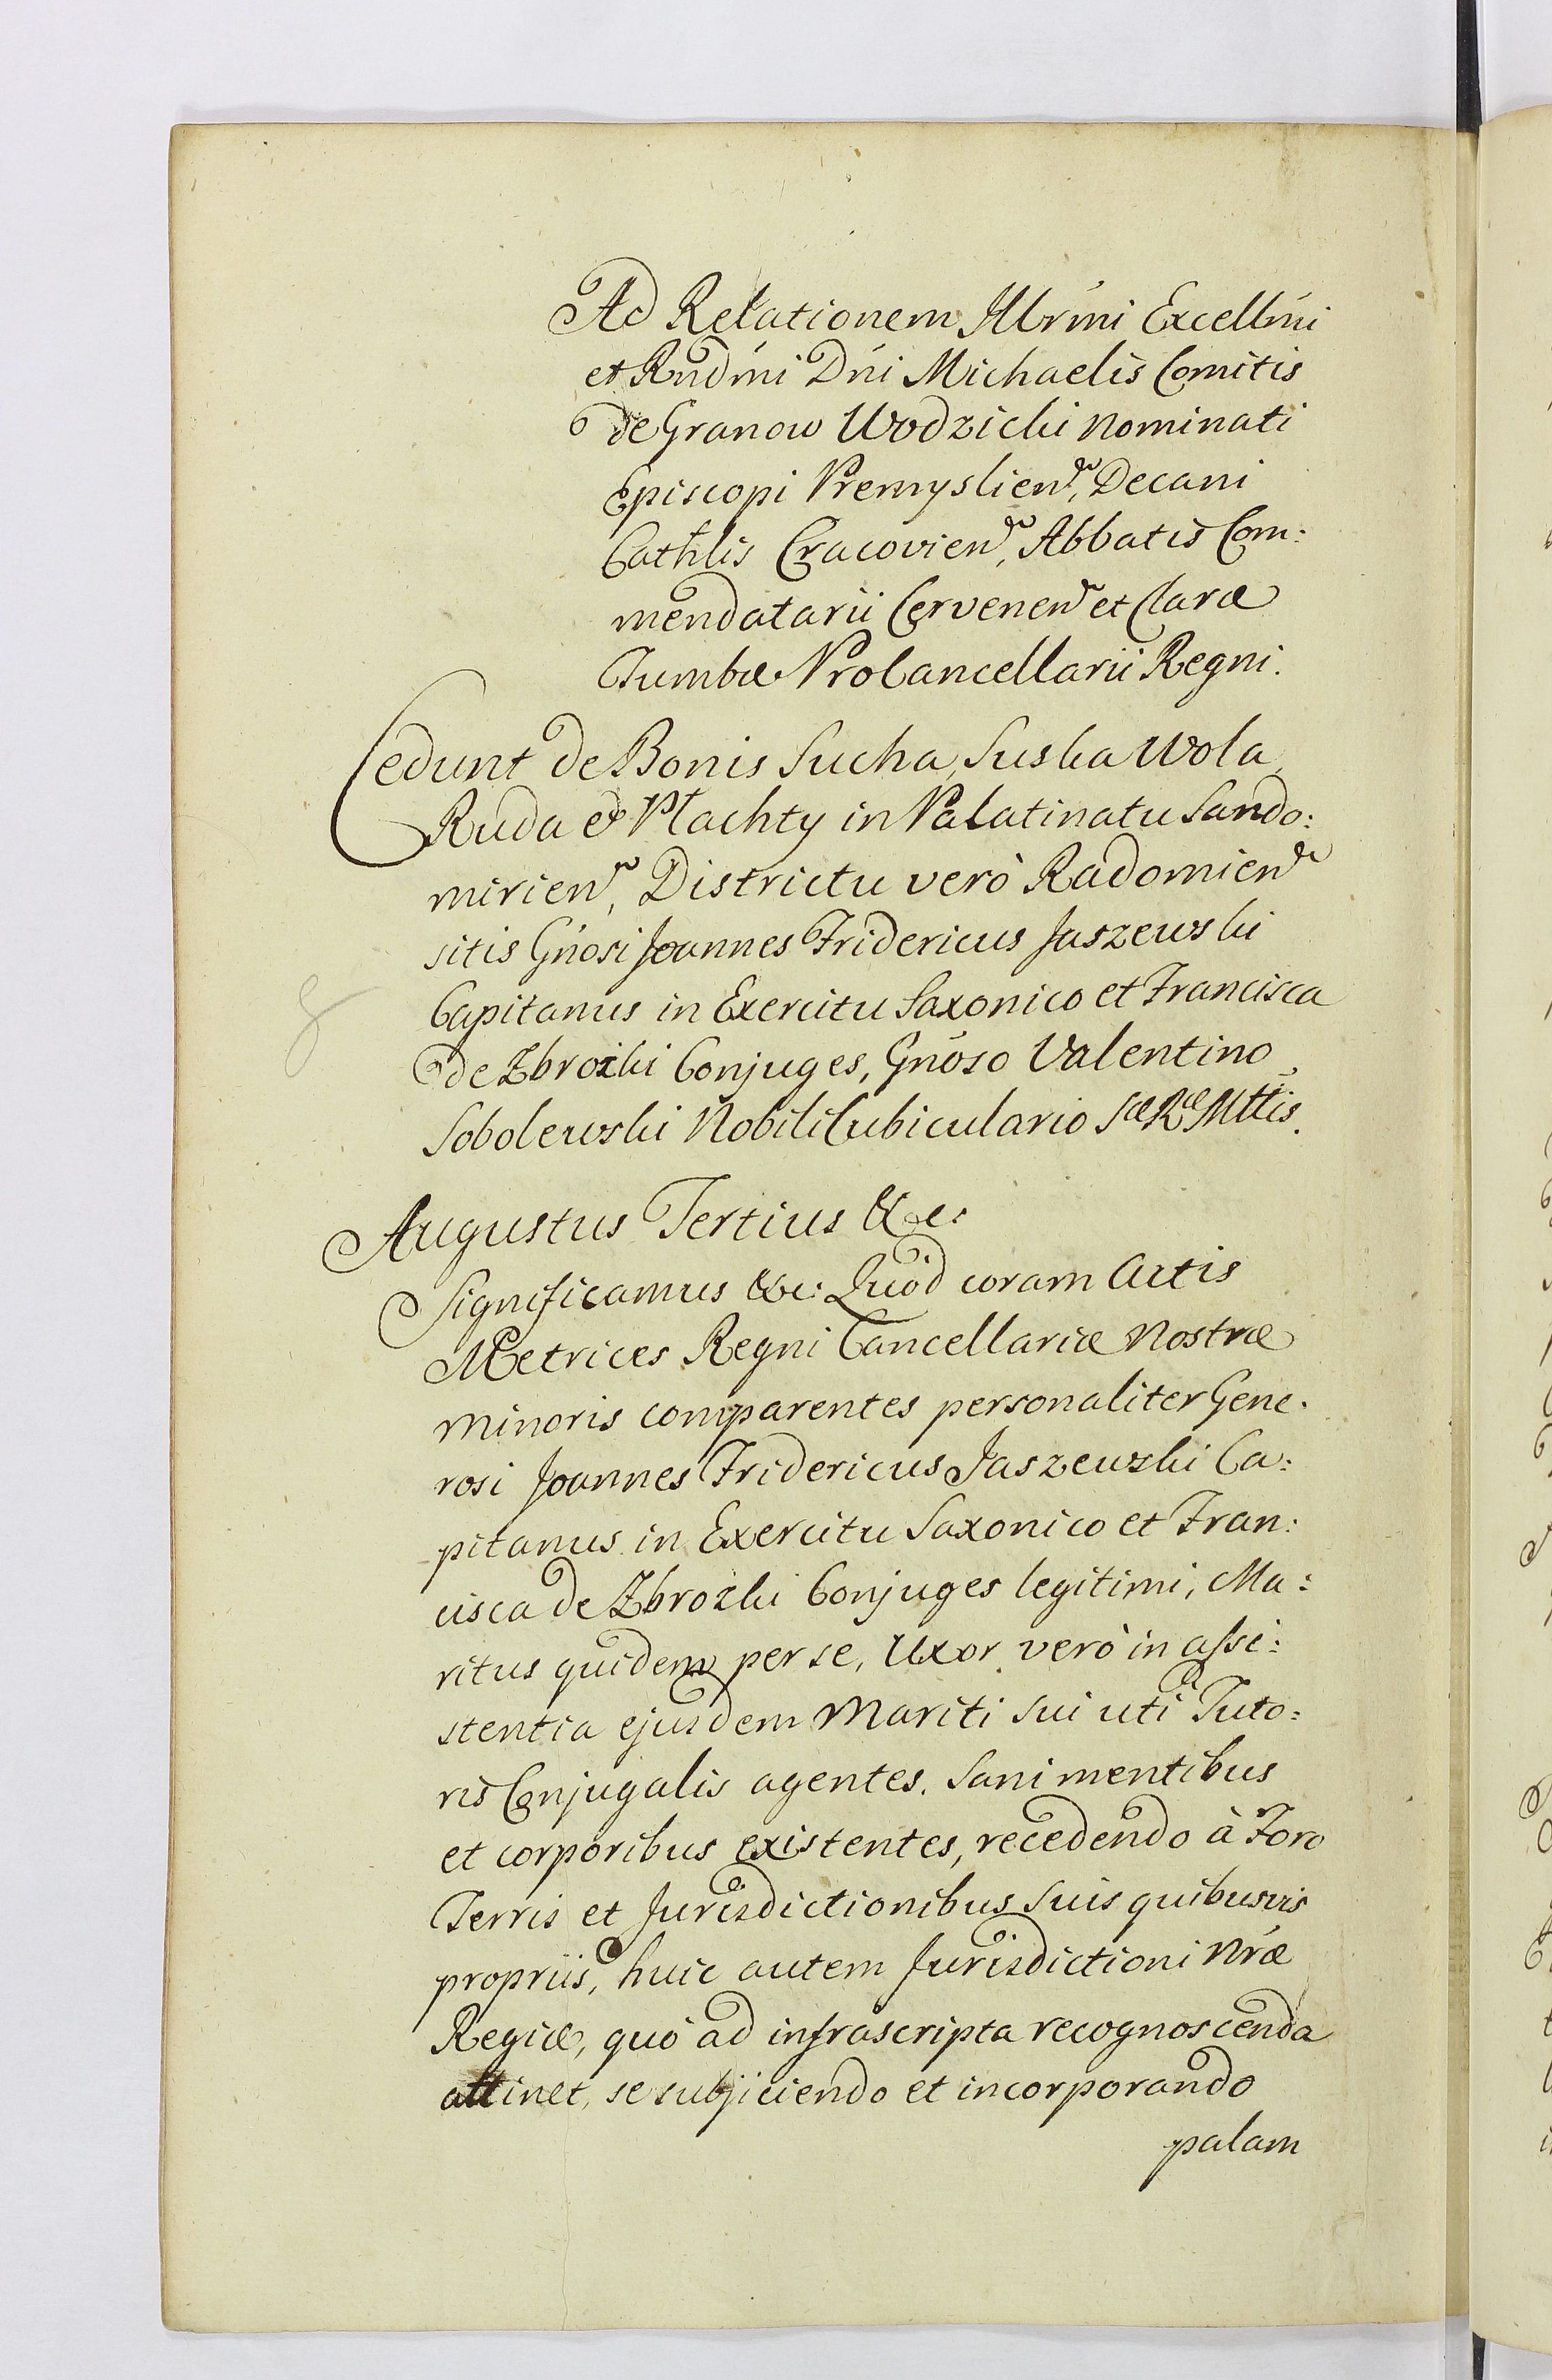 Ad Relationem Illrmi Excellmi
et Rndmi Dni Michaelis Comitis
de Granow Wodzicki Nominati
Episcopi Premyslien, Decani
Cathlis Cracovien, Abbatis Com:
mendatarii Cervenen et Claræ
Tumbæ ProCancellarii Regni.
Cedunt de Bonis Sucha, Suska Wola,
Ruda & Płachty in Palatinatu Sando:
mirien, Districtu verò Radomien
sitis Gnosi Joannes Fridericus Jaszewski
Capitanus in Exercitu Saxonico et Francisca
de Zbrozki Conjuges, Gnoso Valentino
Sobolewski Nobili Cubiculario Sæ Ræ Mttis.
8
Augustus Tertius &c:
Significamus &c: Quod coram Actis
Metrices Regni Cancellariæ Nostræ
Minoris comparentes personaliter Gene.
rosi Joannes Fridericus Jaszewski Ca:
pitanus in Exercitu Saxonico et Fran:
cisca de Zbrozki Conjuges legitimi, Ma:
ritus quidem per se, Uxor verò in assi:
stentia ejusdem Mariti sui uti Tuto:
ris Conjugalis agentes. Sani mentibus
et corporibus existentes, recedendo à Foro
Terris et Jurisdictionibus suis quibusvis
propriis, huic autem Jurisdictioni Nræ
Regiæ, quò ad infrascripta recognoscenda
attinet, se subjiciendo et incorporando
palam